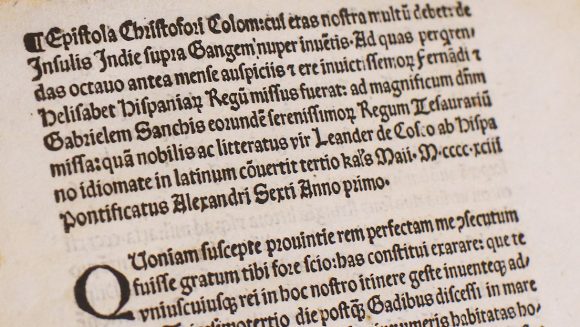 ¶ Epistola Christofori Colom: cui etas nostra multũ debet: de
Insulis Indie supra Gangem nuper inuẽtis. Ad quas perqren⸗
das octauo antea mense auspiciis ⁊ ere inuictissemoꝝ Fernãdi ⁊
Helisabet Hispaniaꝝ Regũ missus fuerat: ad magnificum dñm
Gabrielem Sanchis eorundẽ serenissimoꝝ Regum Tesaurariũ
missa: quã nobilis ac litteratus vir Leander de Cosco ab Hispa
no idiomate in latinum cõuertit tertio kaĺs Maii. M.cccc.xciii
Pontificatus Alexandri Sexti Anno primo.
Quoniam suscepte prouintie rem perfectam me ꝯsecutum
fuisse gratum tibi fore scio: has constitui exarare: que te
vniuscuiusqꝫ rei in hoc nostro itinere geste inuenteqꝫ ad⸗
tertio die postqꝫ Gadibus discessi in mare
innumeris habitatas ho⸗